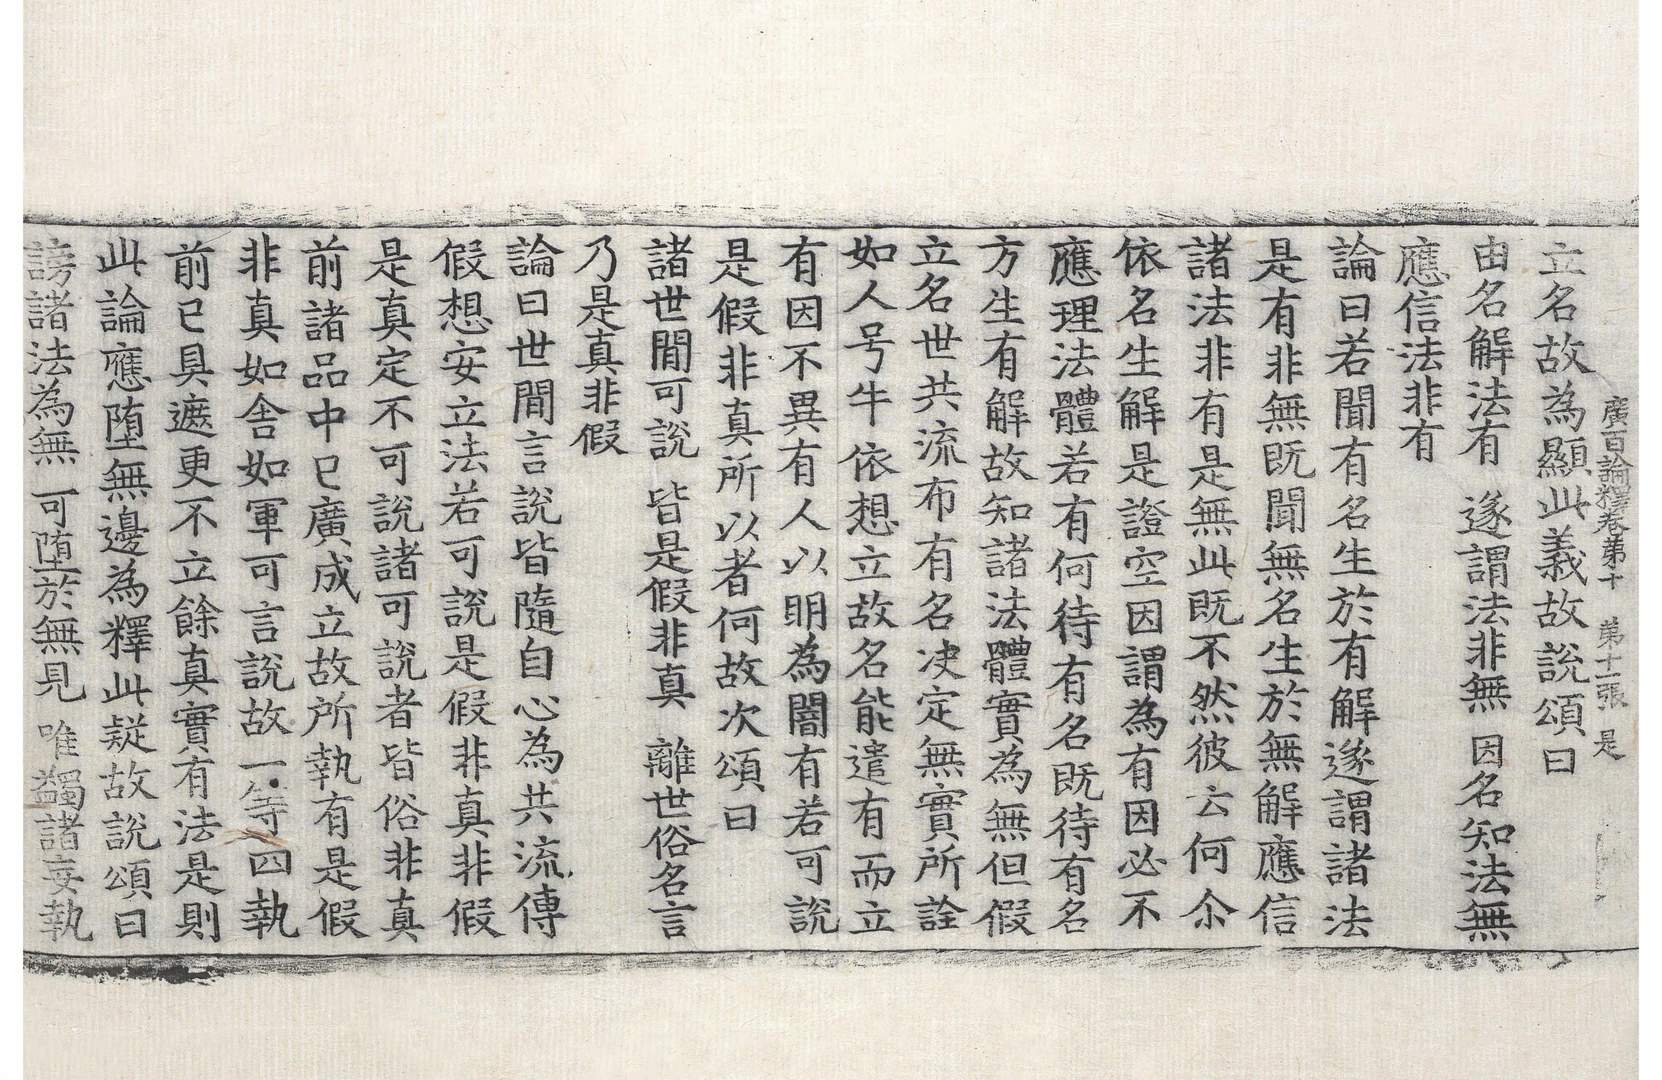 廣百論釋卷第十 第十一張 是
立名故為顯此義故說頌曰
由名解法有 遂謂法非無 因名知法無
應信法非有
論曰若聞有名生於有解遂謂諸法
是有非無既聞無名生於無解應信
諸法非有是無此既不然彼云何尒
依名生解是證空因謂為有因必不
應理法體若有何待有名既待有名
方生有解故知諸法體實為無但假
立名世共流布有名决定無實所詮
如人号牛依想立故名能遣有而立
有因不異有人以明為闇有若可說
是假非真所以者何故次頌曰
諸世間可說 皆是假非真 離世俗名言
乃是真非假
論曰世間言說皆隨自心為共流傳
假想安立法若可說是假非真非假
是真定不可說諸可說者皆俗非真
前諸品中已廣成立故所執有是假
非真如舍如軍可言說故一等四執
前已具遮更不立餘真實有法是則
此論應堕無邊為釋此疑故說頌曰
謗諸法為無 可堕於無見 唯蠲諸妄執